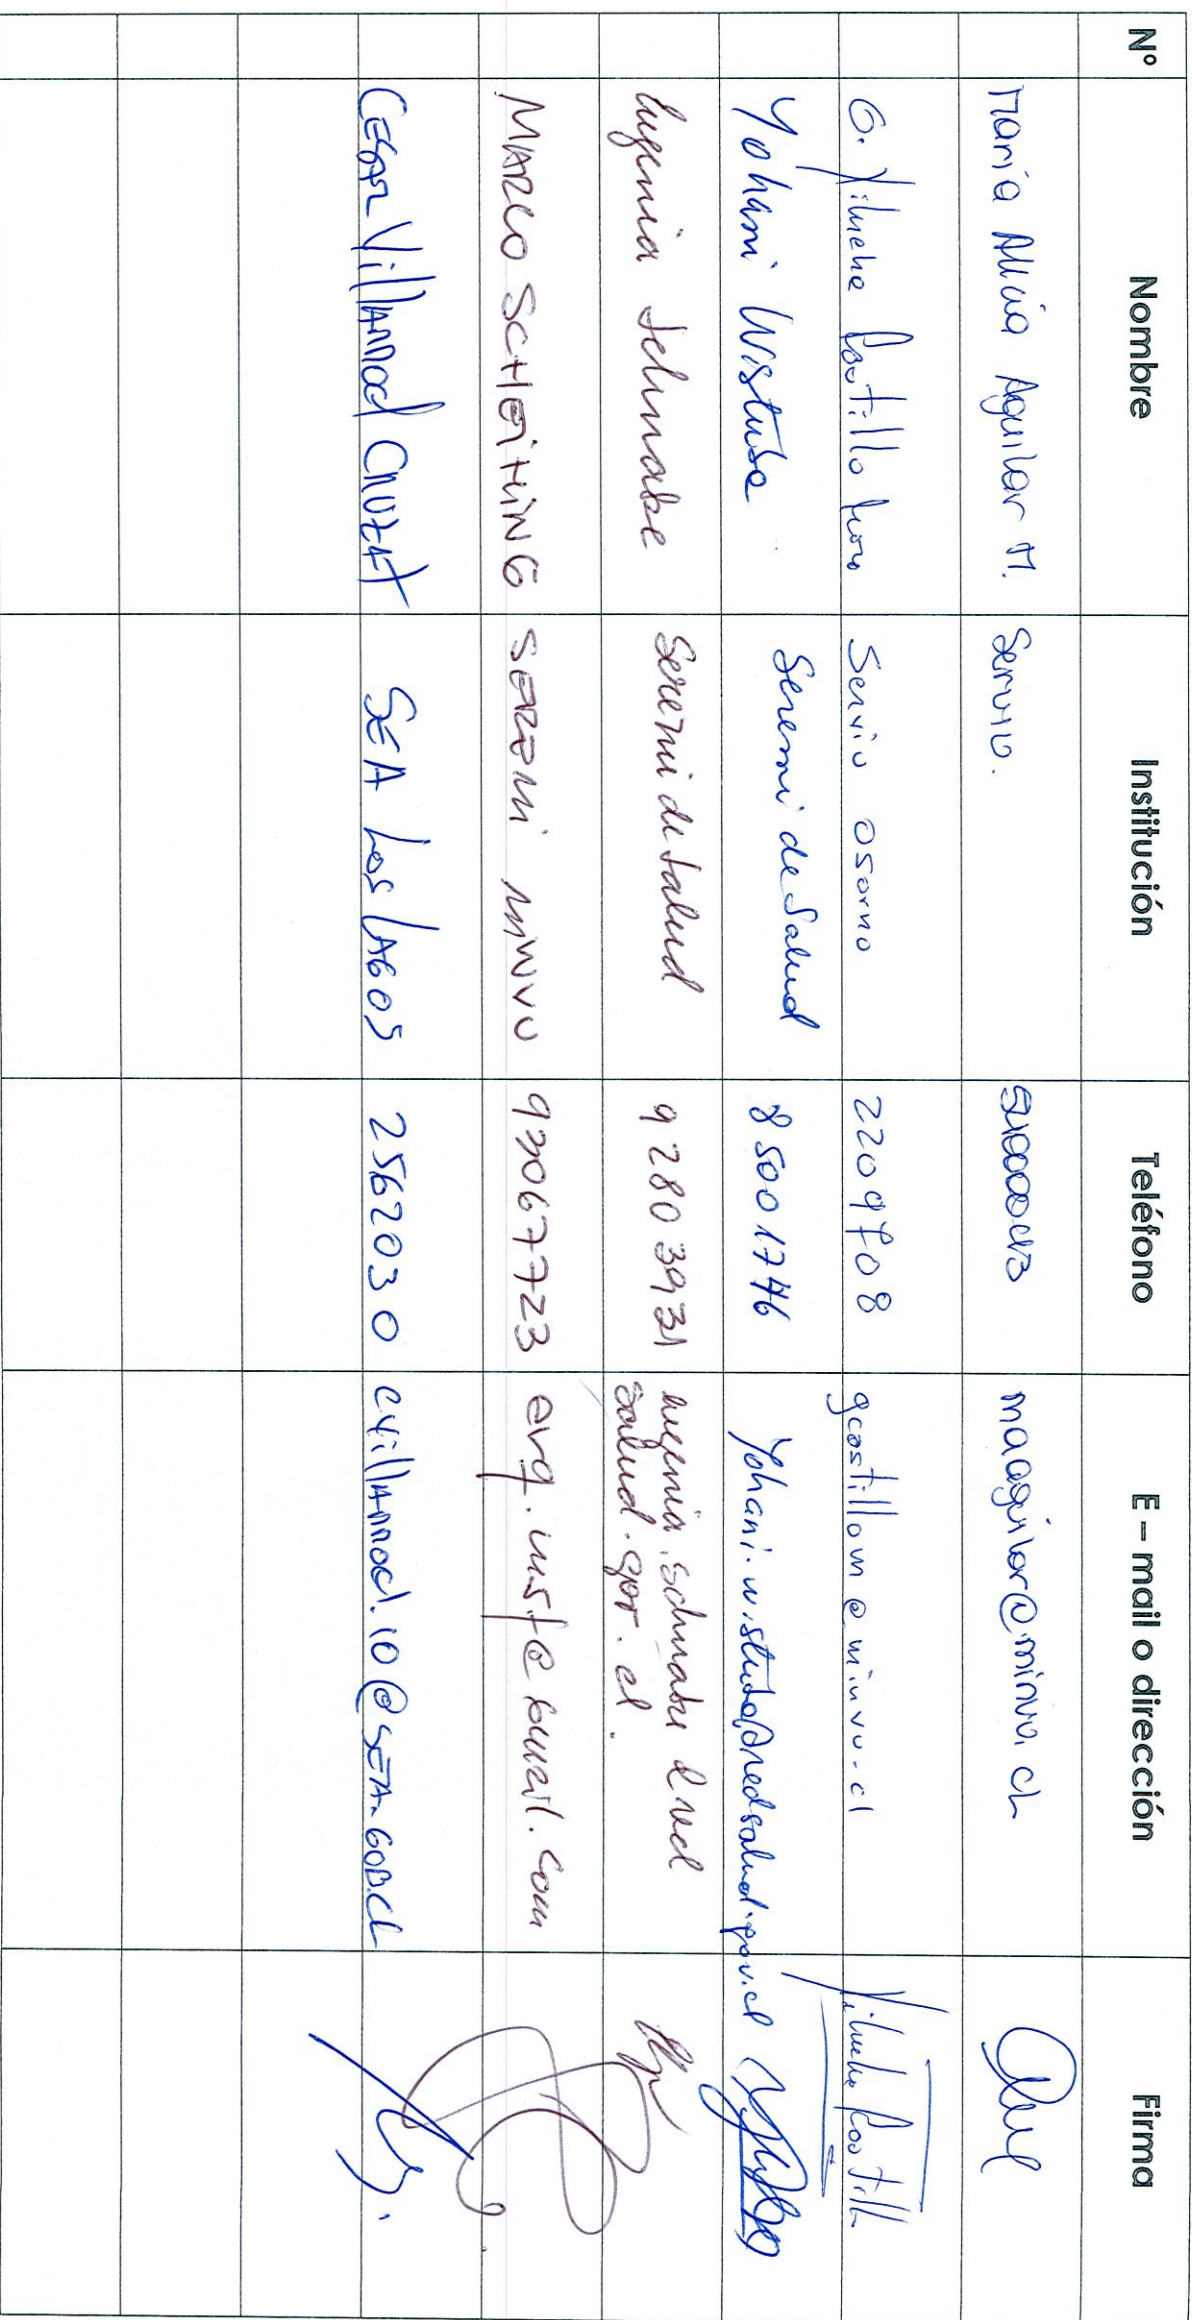 Nº Nombre Institución Teléfono E – mail o dirección Firma
María Alicia Aguilar M. Serviu. maaguilar@minvu.cl
G. Vilneha Castillo Serviu Osorno 2209708 gcastillom@minvu.cl
Yohani Wistuba Seremi de Salud 85001746 Yohani.wistuba@redsalud.gov.cl
Eugenia Schnabe Seremi de Salud 92803931 eugenia.schnabe@red
salud.gov.cl.
MARCO SCHEIHING SEREMI MINVU 93067723 arq.msf@gmail.com
CESAR VillARROEl CRUZAT SEA Los LAGOS 2562030 cvillARROEl.10@SEA.GOB.Cl